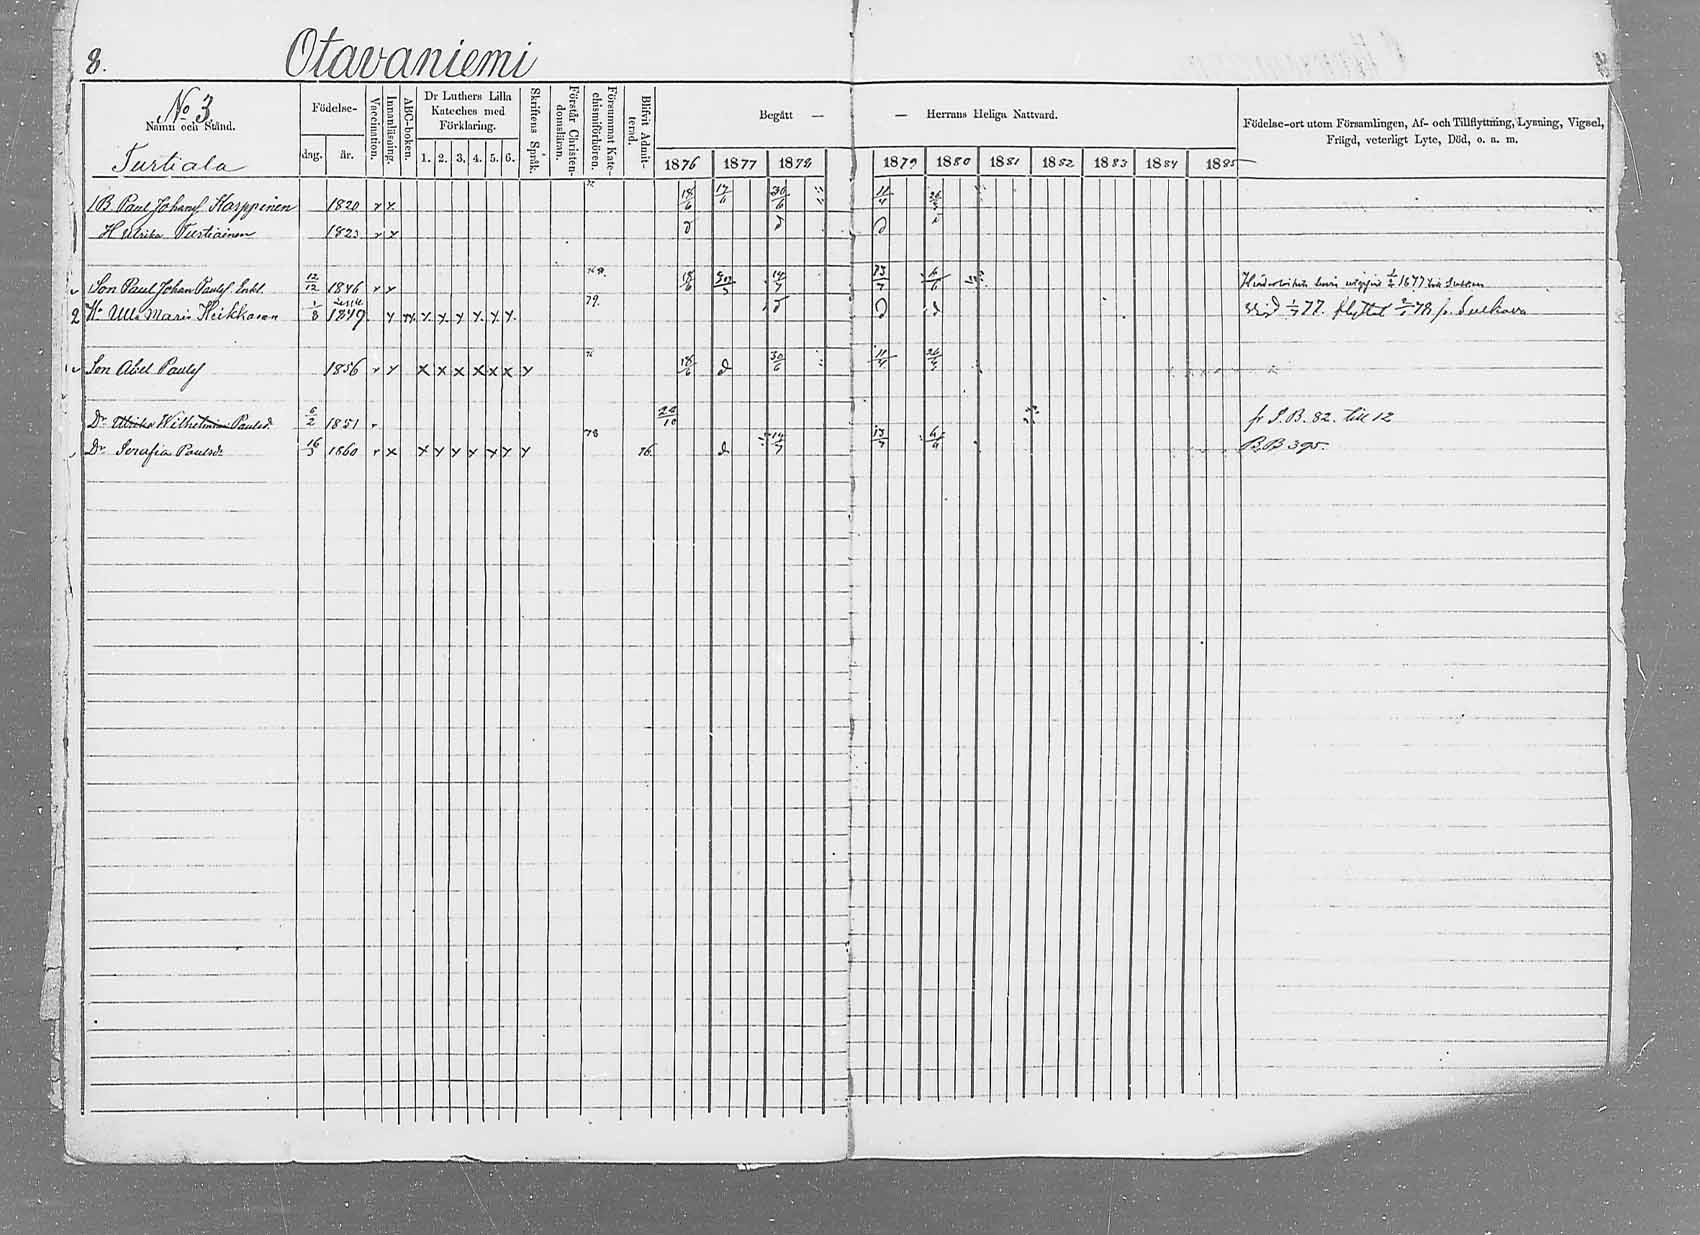 8. Otavaniemi
No 3.
Namn och Stånd.
Turtiala
Födelse-
dag. år.
Vaccination.
Innanläsning.
ABC-boken.
Dr Luthers Lilla
Kateches med
Förklaring.
1. 2. 3. 4. 5. 6.
Skriftens Språk.
Förstår Christen-
domsläran.
Försummat Kate-
chismiförhören.
Blifvit Admit-
terad.
Begått — — Herrans Heliga Nattvard.
1876 1877 1878 1879 1880 1881 1882 1883 1884 1885
Födelse-ort utom Församlingen, Af- och Tillflyttning, Lysning, Vigsel,
Frägd, veterligt Lyte, Död, o. a. m.
1 B Paul Johansf Karppinen 1820 v x 18/6 17/6 30/6
H Ulrika Turtiainen 1823 v x
Son Paul Johan Paulsf Enkl. 12/12 1846 v x 18/6 14/7 13/7 6/6
2 Hu Ulla Maria Heikkonen 1/8 1849 x x x x x x x 79.
Son Abel Paulsf 1856 v x x x x x x x x 18/6 d 30/6 11/4
Dr Ulrika Wilhelmina Paulsd. 6/2 1851 v 22/10 fr I. B. 82. till 12
Dr Serafia Paulsdr 16/5 1860 v x x x x x x x x 78 76. d 14/7 13/7 6/6 B.B 395.